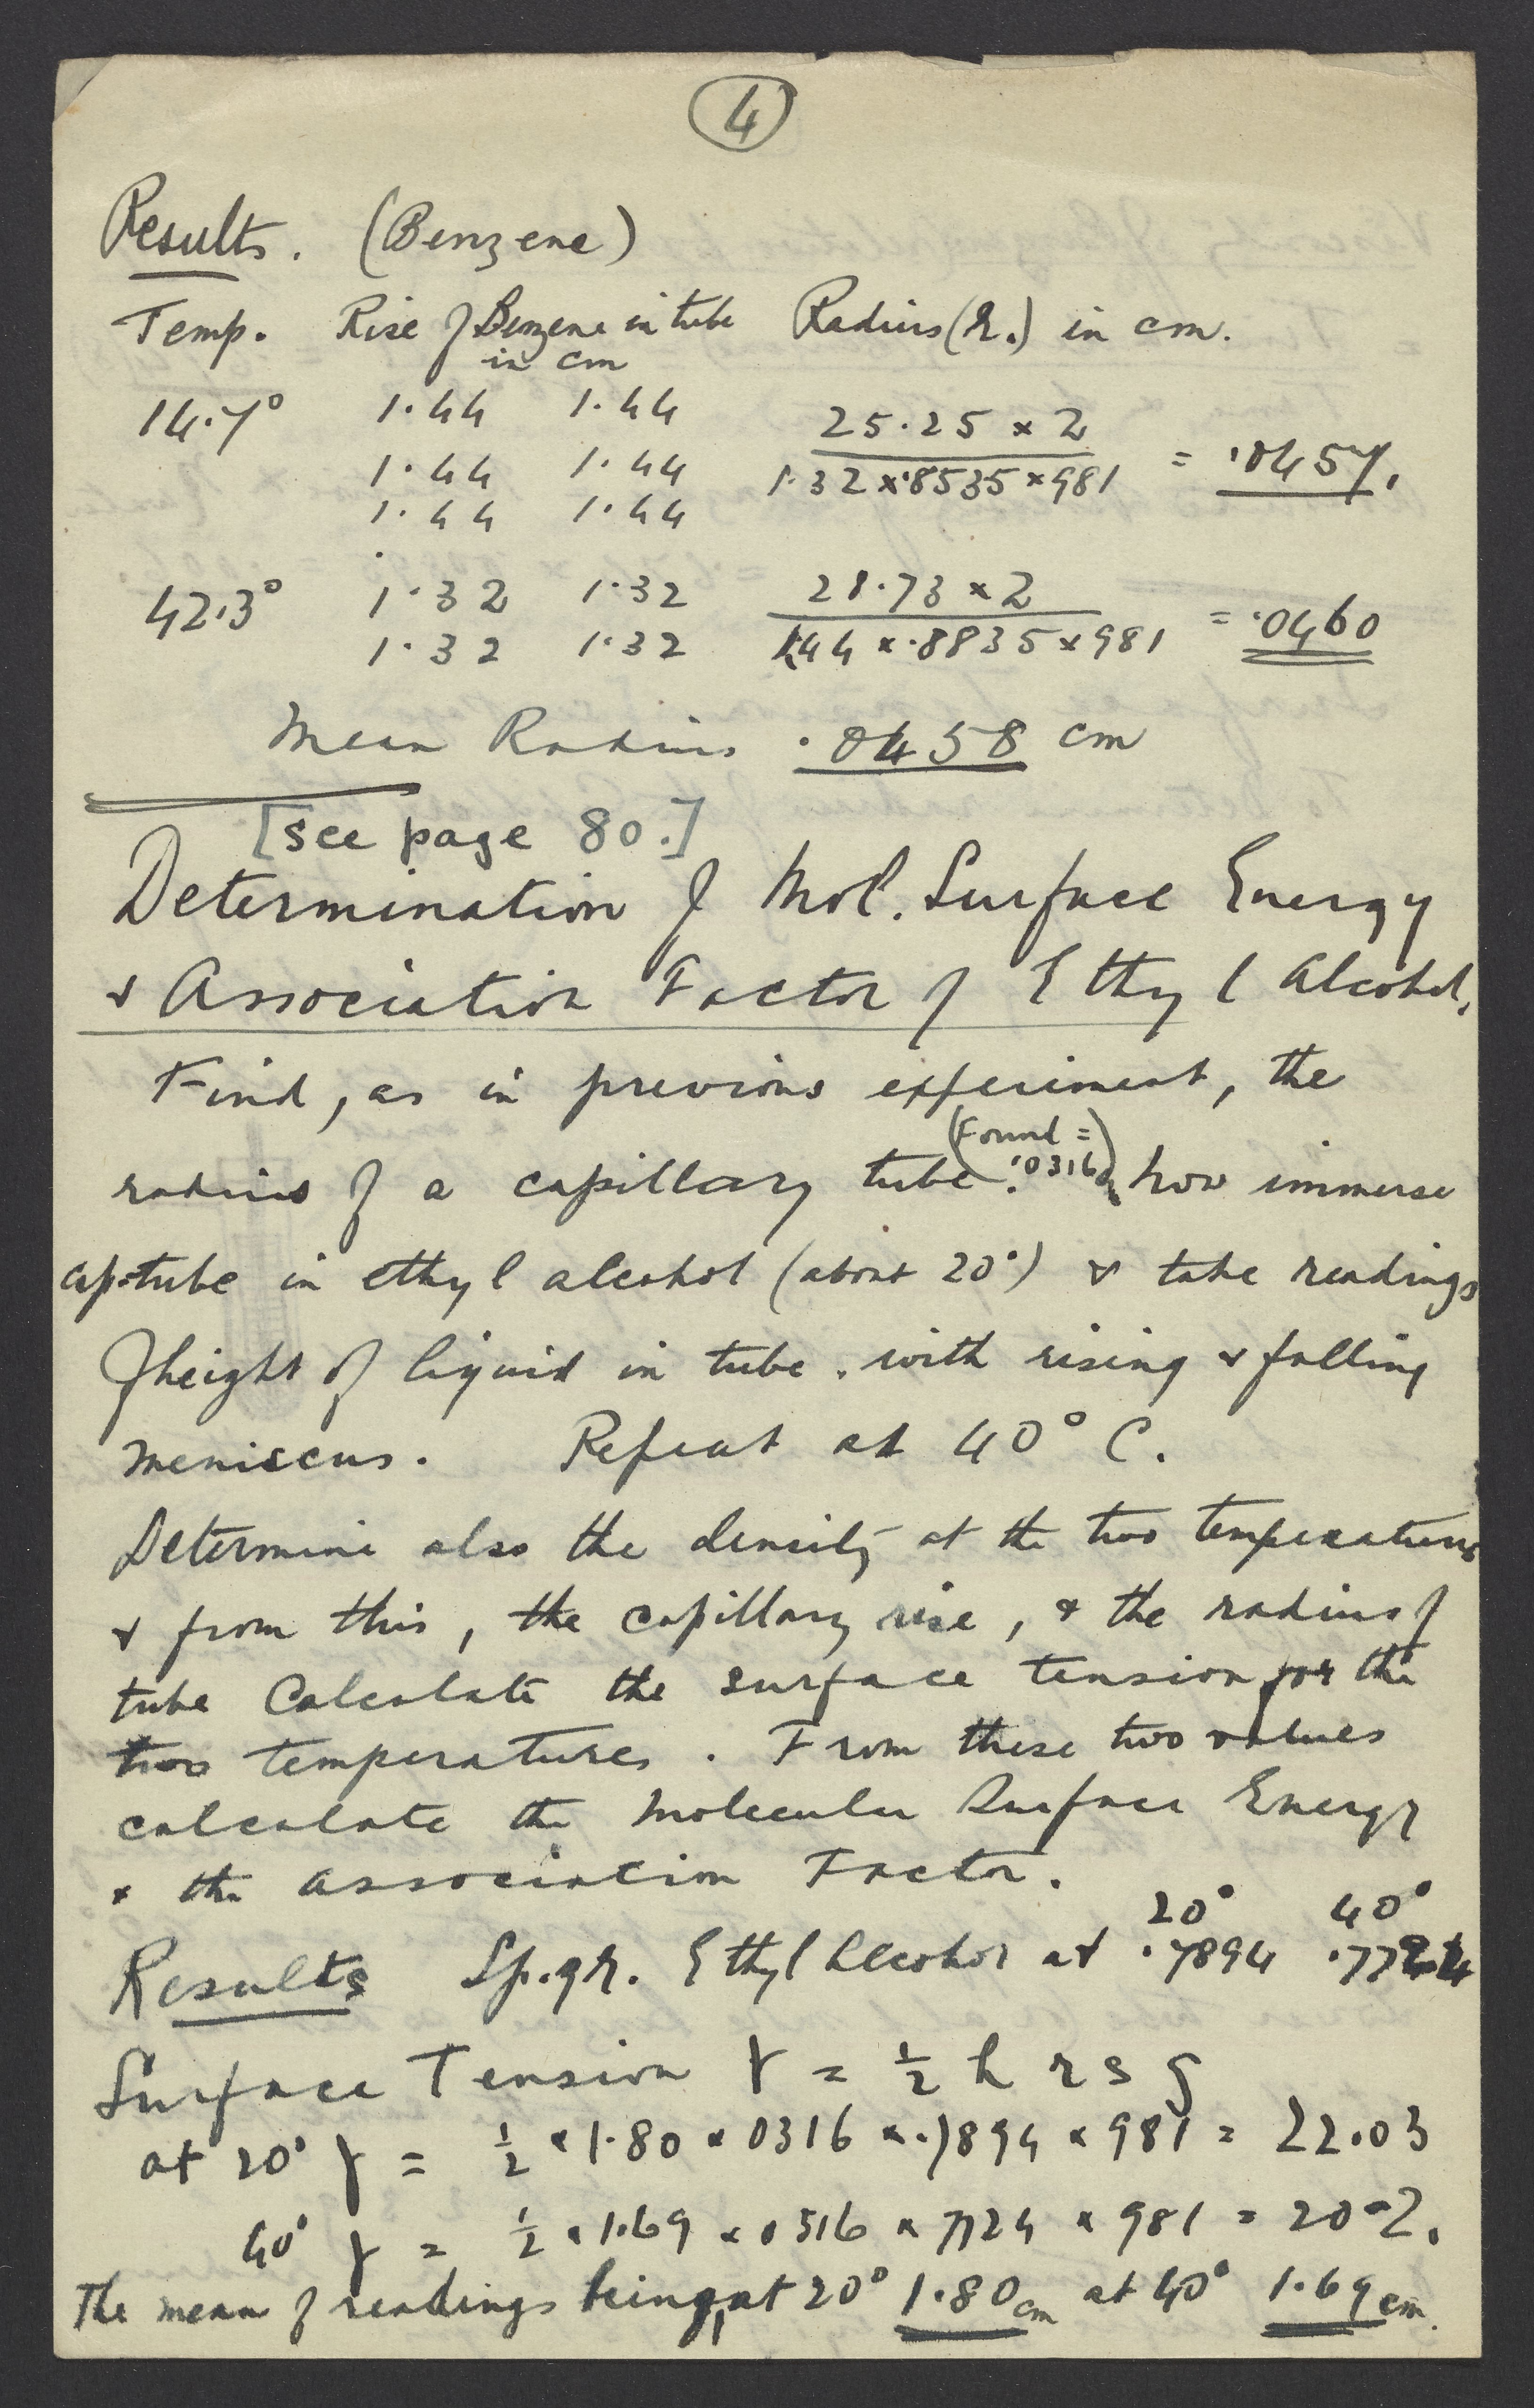 4
Results. (Benzene)
Temp. Rise of Benzene in tube Radius (r.) in cm.
in cm
14.7° 1.44 1.44
1.44 1.44
1.44 1.44
25.25 × 2
1.32 × .8535 × 981 = .0457.
42.3° 1.32 1.32
1.32 1.32
28.73 × 2
1.44 × .8835 × 981 = .0460
Mean Radius .0458 cm
[See page 80.]
Determination of Mol. Surface Energy
& Association Factor of Ethyl Alcohol.
Find, as in previous experiment, the
(Found =
radius of a capillary tube. .0316) Now immerse
cap-tube in ethyl alcohol (about 20°) & take readings
of height of liquid in tube. with rising & falling
meniscus. Repeat at 40° C.
Determine also the density at the two temperatures
& from this, the capillary rise, & the radius of
tube Calculate the surface tension for the
two temperatures. From these two values
calculate the Molecular Surface Energy
& the Association Factor.
20° 40°
Results Sp.gr. Ethyl Alcohol at .7894 .7724
Surface Tension γ = ½ h r s g
at 20° γ = ½ × 1.80 × 0316 × .7894 × 981 = 22.03
40° γ = ½ × 1.69 × 0316 × 7724 × 981 = 20.2.
The mean of readings being, at 20° 1.80 cm at 40° 1.69 cm.